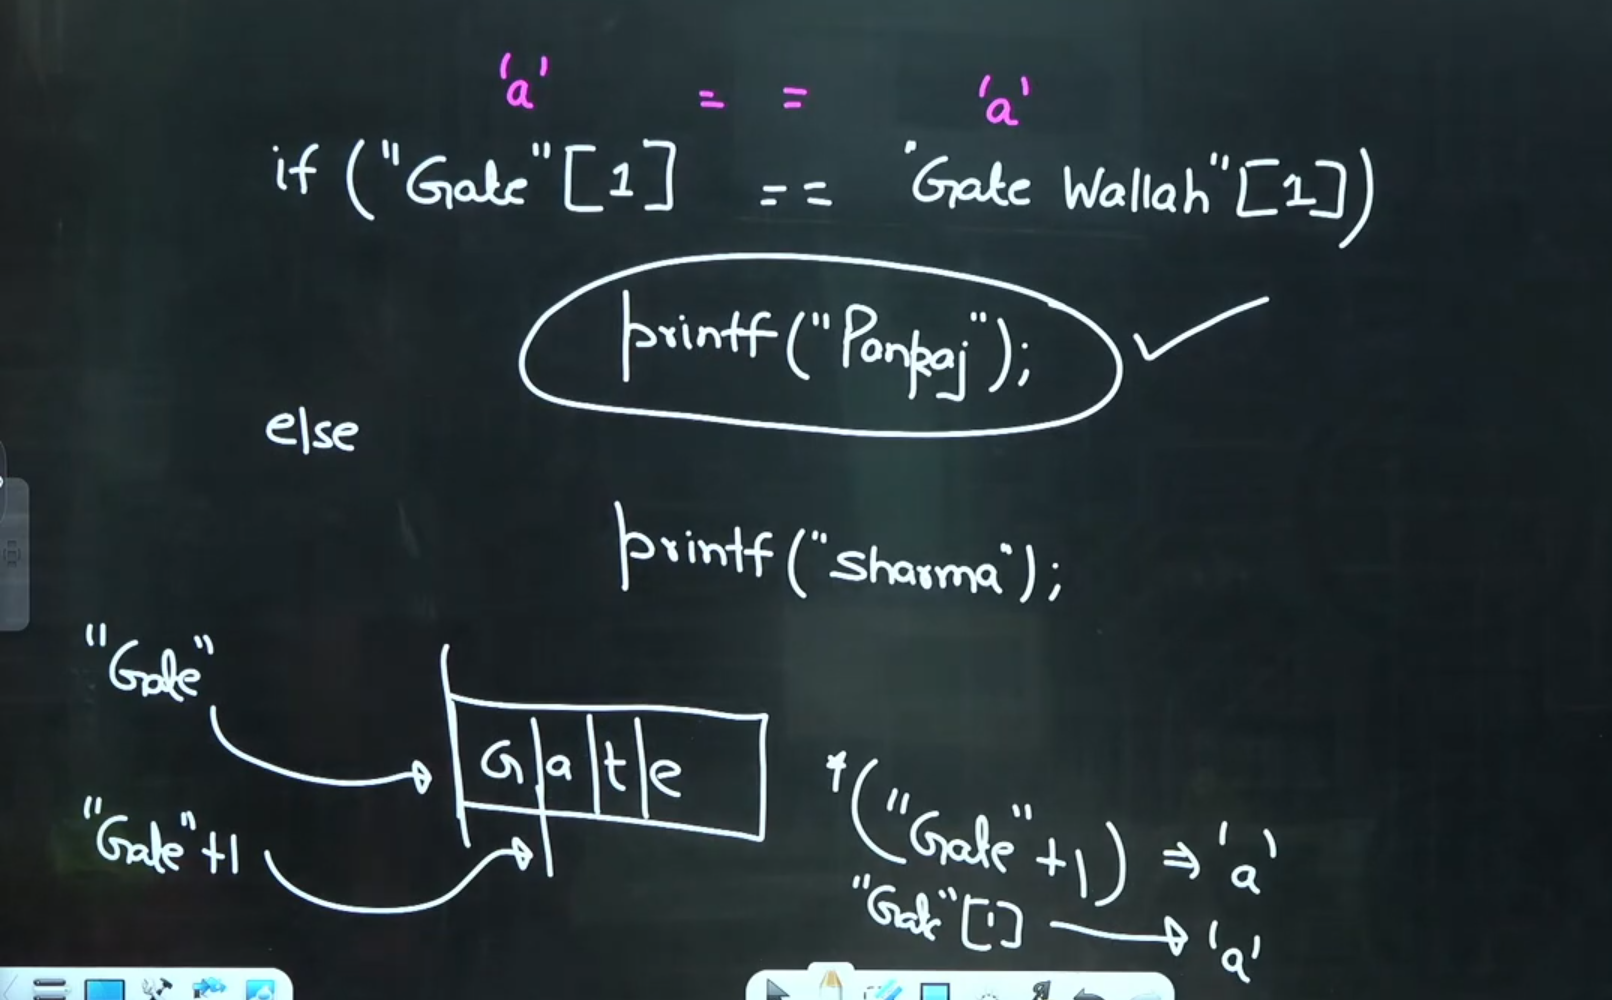 'a' = = 'a'
if ("Gate"[1] == "Gate Wallah"[1])
printf("Pankaj");
else
printf("sharma");
"Gate"
G a t e
"Gate"+1
*("Gate"+1) ⇒ 'a'
"Gate"[1] → 'a'